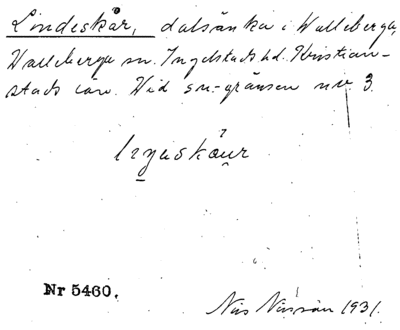 Lindeskår, dalsänka i Valleberga,
Valleberga sn. Ingelstads hd. Kristian-
stads län. Vid sn-gränsen nr 3.
Nr 5460.
Nils Nilsson 1931.